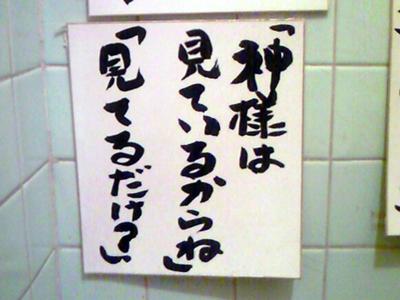 「神様は
見ているからね」
「見てるだけ?」